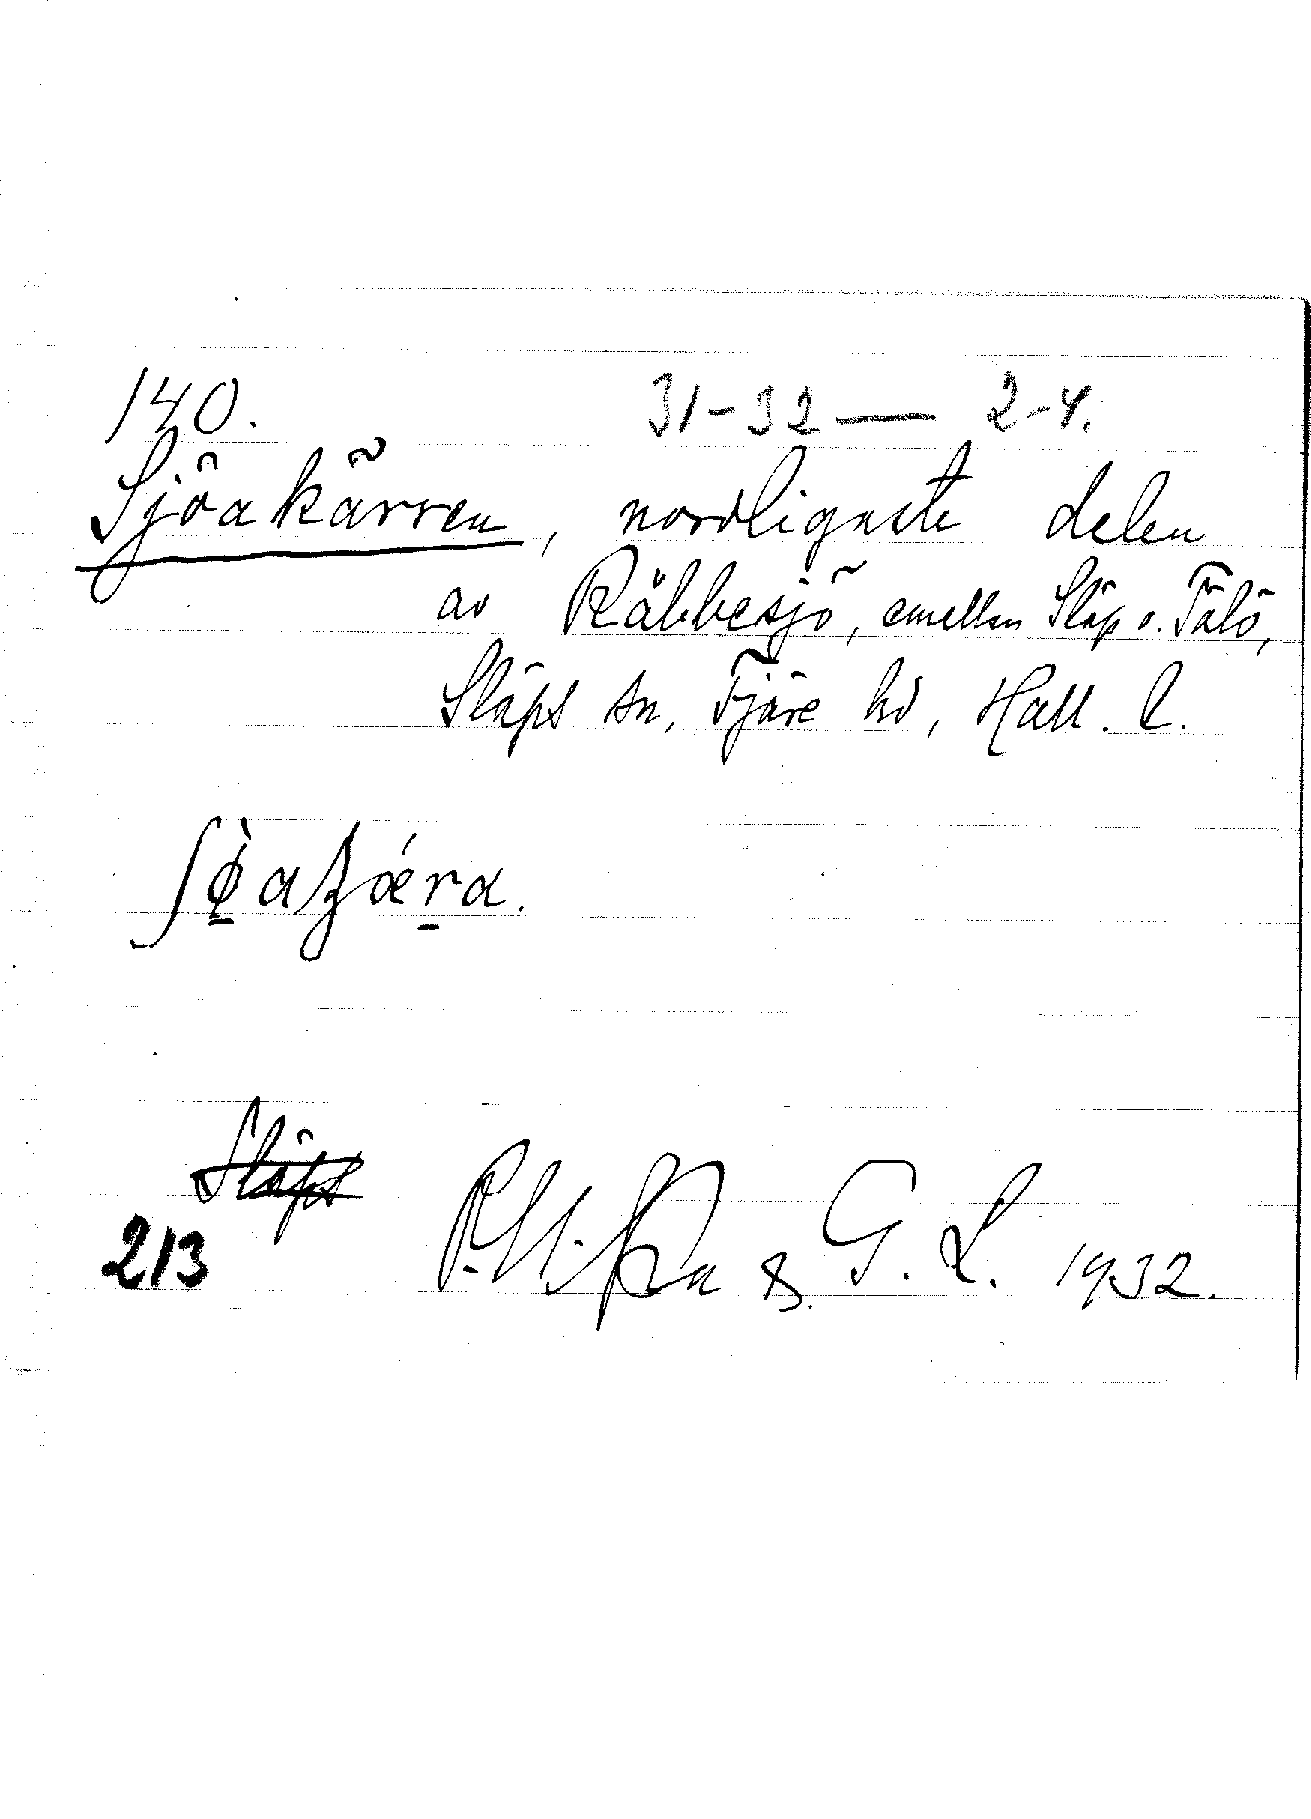 140. 31-32 — 2-4.
Sjöakärren, nordligaste delen
av Räbbesjö, emellan Släp o. Tölö,
Släps sn, Fjäre hd, Hall. l.
Släps
213 & G. L. 1932.